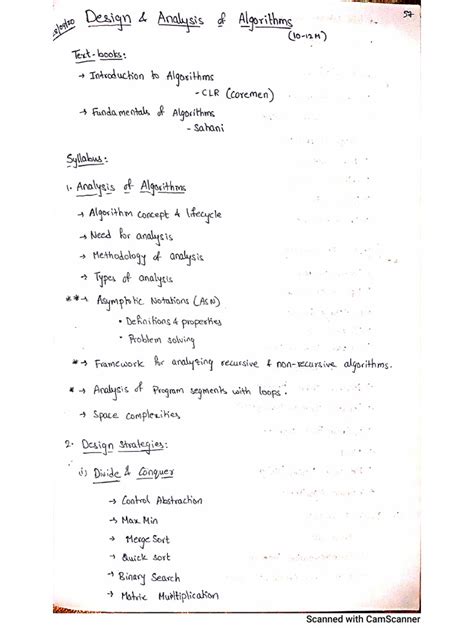 Design & Analysis of Algorithms
57
(10-12M)
Text-books:
→ Introduction to Algorithms
- CLR (Coremen)
→ Fundamentals of Algorithms
- Sahani
Syllabus:
1. Analysis of Algorithms
→ Algorithm concept & lifecycle
→ Need for analysis
→ Methodology of analysis
→ Types of analysis
**→ Asymptotic Notations (ASN)
• Definitions & properties
• Problem solving
*→ Framework for analyzing recursive & non-recursive algorithms.
*→ Analysis of Program segments with loops.
→ Space complexities
2. Design Strategies:
(i) Divide & Conquer
→ Control Abstraction
→ Max Min
→ Merge Sort
→ Quick sort
→ Binary Search
→ Matric Multiplication
Scanned with CamScanner